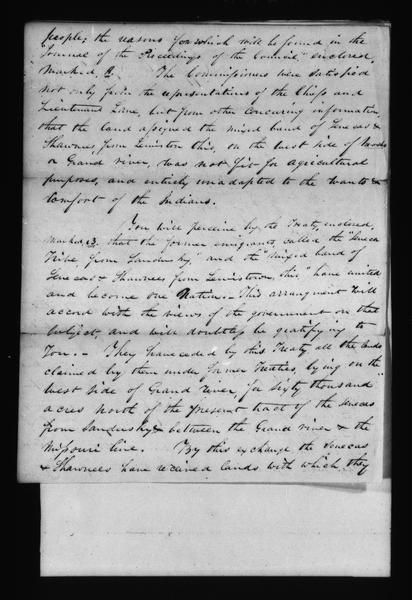 people; the reasons for which will be found in the
Journal of the Proceedings of the Council" enclosed,
Marked, 2. The Commissioners were satisfied
not only from the representations of the Chiefs and
Lieutenant Lane, but from other concuring information,
that the land assigned the mixed band of Senecas &
Shawnees, from Lewiston Ohio, on the west side of Neosho
or Grand river, was not fit for agricultural
purposes, and entirely unadapted to the wants &
comfort of the Indians.
You will perceive by the Treaty, enclosed,
marked 3. that the former emigrants, called the "Seneca
Tribe from Sandusky," and the "Mixed band of
Senecas & Shawnees from Lewistown, Ohio," have united
and become one Nation. - This arrangment will
accord with the views of the government on that
subject, and will doubtless be gratifying to
You. - They have ceded by this Treaty all the lands
claimed by them under former Treaties, lying on the
west side of Grand river, for sixty thousand
acres north of the present tract of the Senecas
from Sandusky & between the Grand river & the
Missouri line. By this exchange the Senecas
& Shawnees have received lands with which they